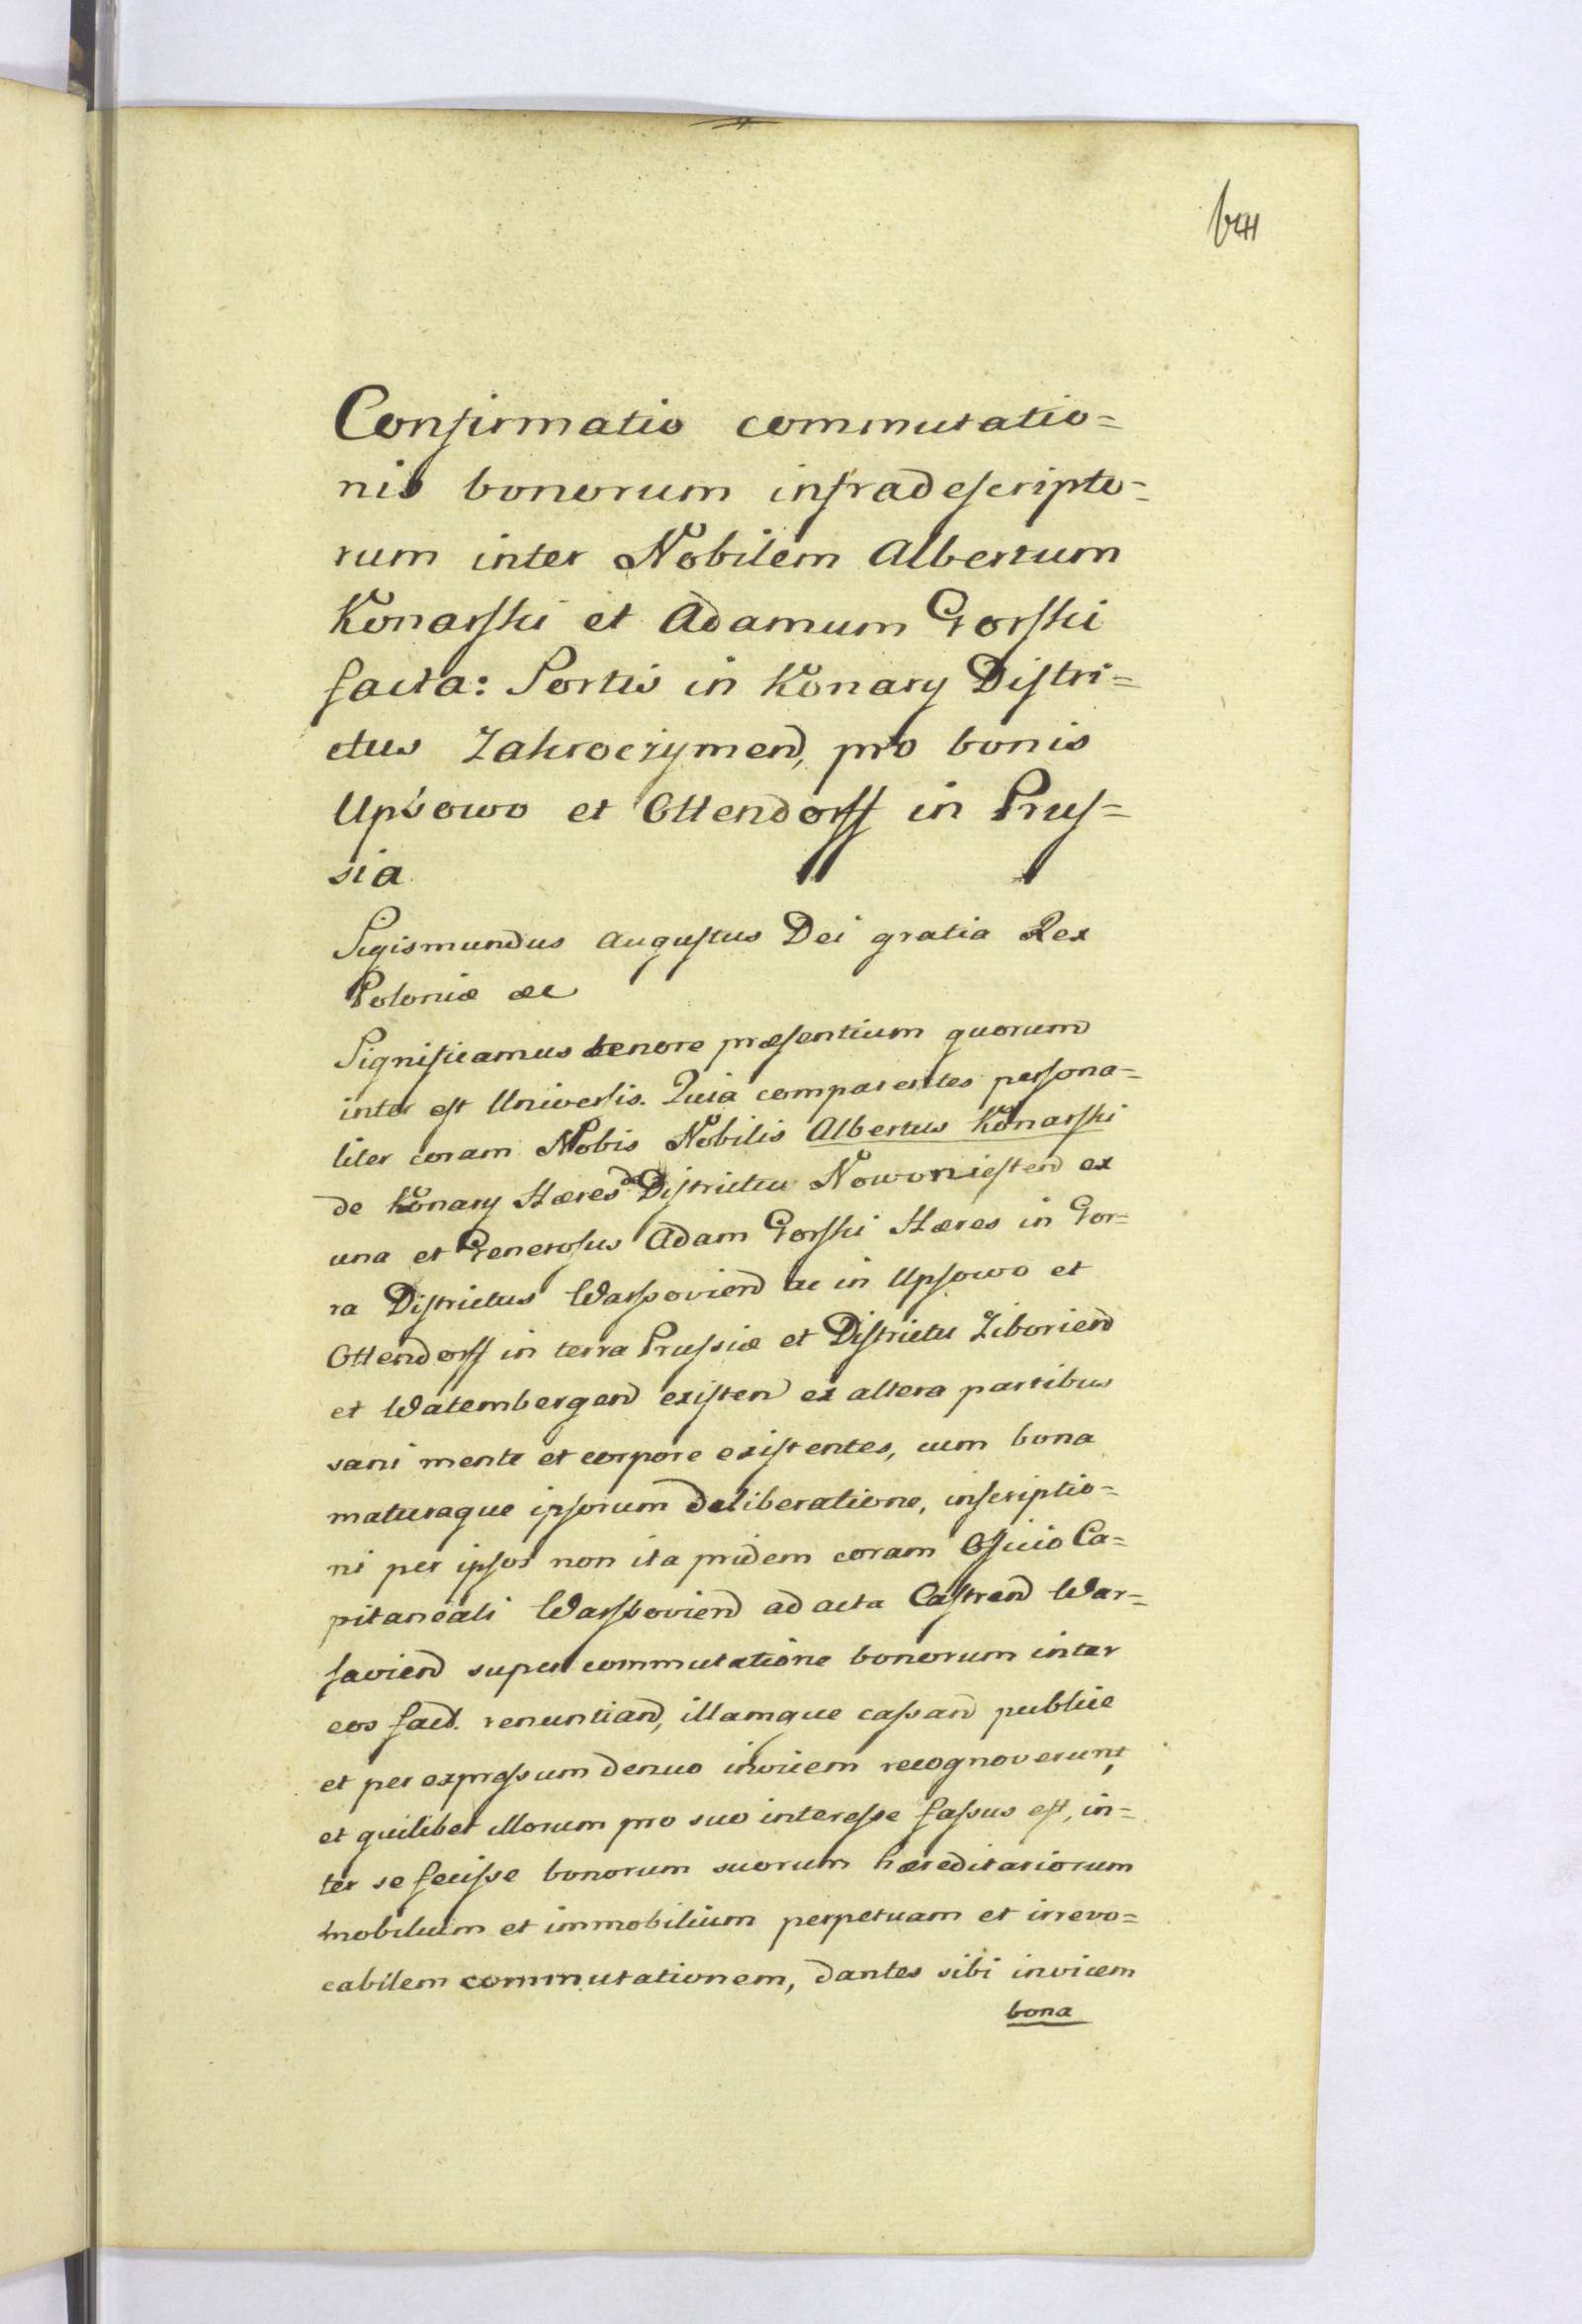 Confirmatio commutatio=
nis bonorum infradescripto=
rum inter Nobilem Albertum
Konarski et Adamum Gorski
facta: Sortis in Konary Distri=
ctus Zakroczymen, pro bonis
Upsowo et Ottendorff in Prus=
sia
Sigismundus Augustus Dei gratia Rex
Poloniæ &c
Significamus tenore præsentium quorum
inter est Universis. Quia comparentes persona=
liter coram Nobis Nobilis Albertus Konarski
de Konary Hæres de Districtu Nowomiesten ex
una et Generosus Adam Gorski Hæres in Gor=
ra Districtus Warsovien ac in Upsowo et
Ottendorff in terra Prussiæ et Districtu Ziborien
et Watembergen existen ex altera partibus
sani mente et corpore existentes, cum bona
maturaque ipsorum deliberatione, inscriptio=
ni per ipsos non ita pridem coram Officio Ca=
pitaneali Warsovien ad acta Castren War=
savien super commutatione bonorum inter
eos fact. renuntian, illamque cassan publice
et per expressum denuo invicem recognoverunt,
et quilibet illorum pro suo interesse fassus est, in=
ter se fecisse bonorum suorum hæreditariorum
mobilium et immobilium perpetuam et irrevo=
cabilem commutationem, dantes sibi invicem
bona